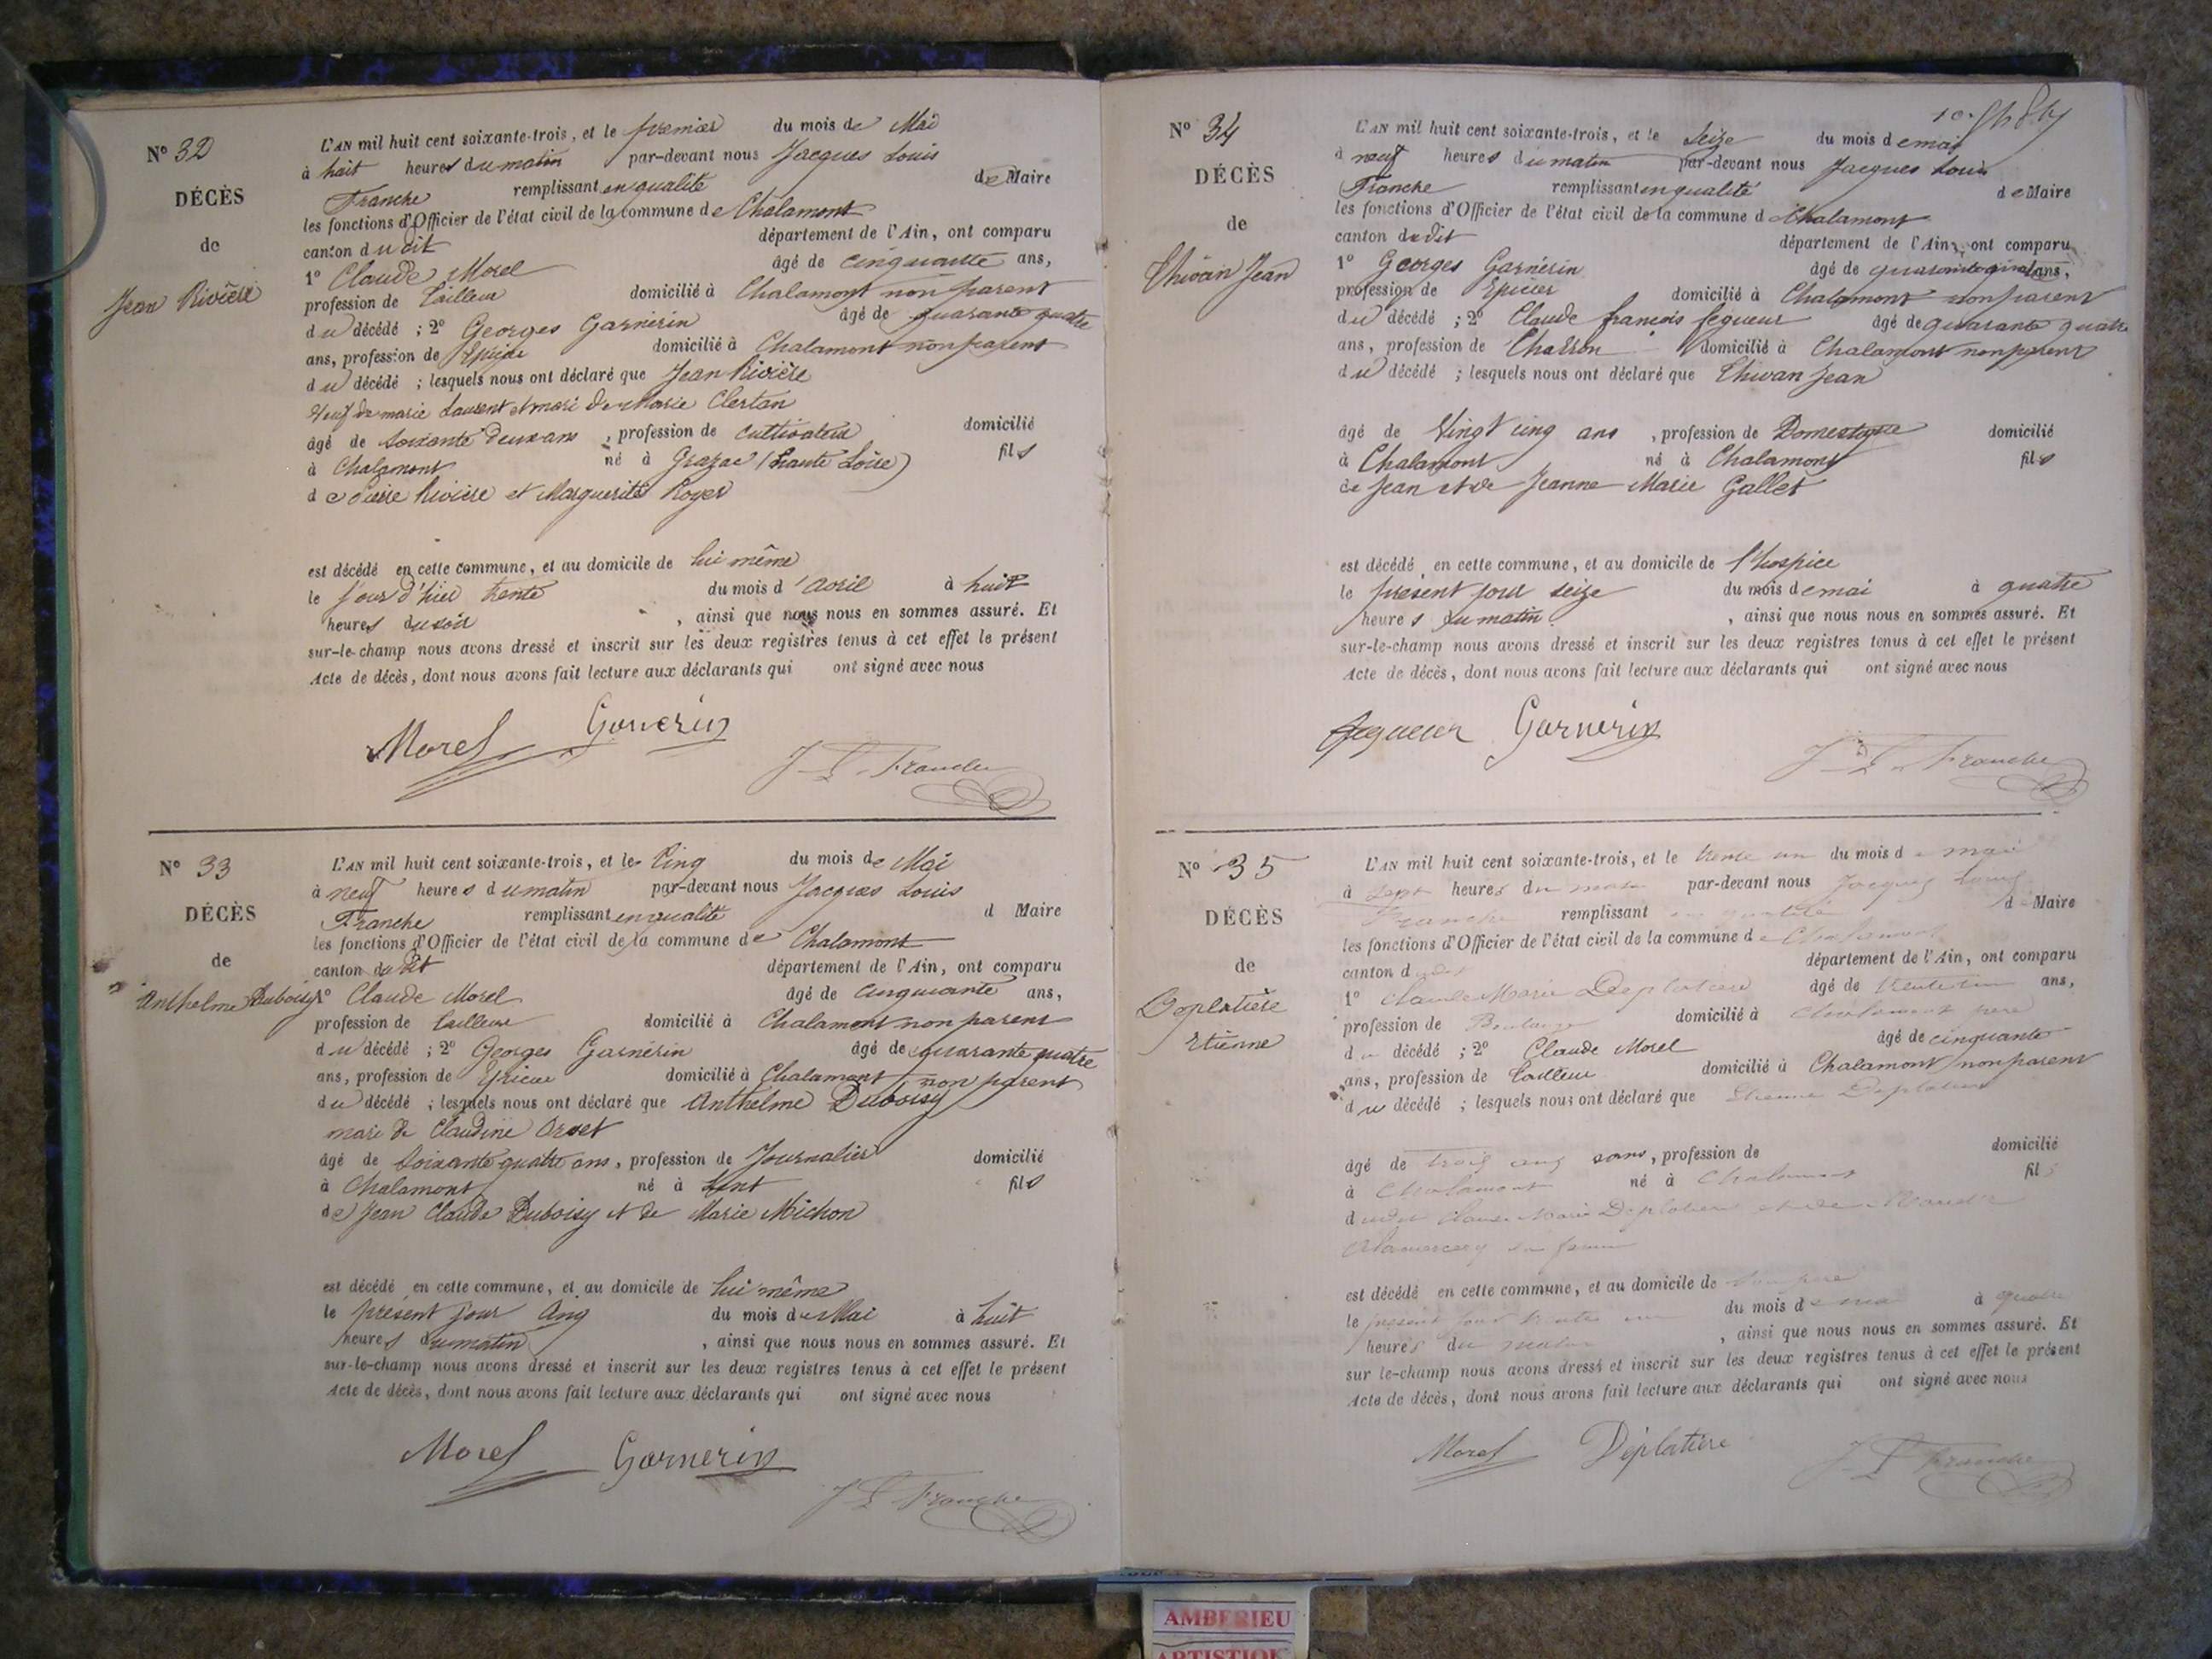 N° 32
DÉCÈS
de
Jean Rivière
L'AN mil huit cent soixante-trois, et le premier du mois de Mai
à huit heures du matin par-devant nous Jacques Louis
Franche remplissant en qualité de Maire
les fonctions d'Officier de l'état civil de la commune de Chalamont
canton dudit département de l'Ain, ont comparu
1° Claude Morel âgé de cinquante ans,
profession de Tailleur domicilié à Chalamont non parent
du décédé ; 2° Georges Garnerin âgé de quarante quatre
ans, profession de Epicier domicilié à Chalamont non parent
du décédé ; lesquels nous ont déclaré que Jean Rivière
Veuf de marie Laurent et mari de Marie Clertan
âgé de Soixante deux ans, profession de cultivateur domicilié
à Chalamont né à Grazac (haute Loire) fils
de Pierre Rivière et Marguerite Royer
est décédé en cette commune, et au domicile de lui même
le jour d'hier trente du mois d'avril à huit
heures du soir, ainsi que nous nous en sommes assuré. Et
sur-le-champ nous avons dressé et inscrit sur les deux registres tenus à cet effet le présent
Acte de décès, dont nous avons fait lecture aux déclarants qui ont signé avec nous
Morel Garnerin
J L Franche
N° 33
DÉCÈS
de
Anthelme Duboisy
L'AN mil huit cent soixante-trois, et le Cinq du mois de Mai
à neuf heures du matin par-devant nous Jacques Louis
Franche remplissant en qualité d Maire
les fonctions d'Officier de l'état civil de la commune de Chalamont
canton dudit département de l'Ain, ont comparu
1° Claude Morel âgé de Cinquante ans,
profession de Tailleur domicilié à Chalamont non parent
du décédé ; 2° Georges Garnerin âgé de quarante quatre
ans, profession de Epicier domicilié à Chalamont non parent
du décédé ; lesquels nous ont déclaré que Anthelme Duboisy
mari de Claudine Orset
âgé de Soixante quatre ans, profession de Journalier domicilié
à Chalamont né à Lent fils
de Jean Claude Duboisy et de Marie Michon
est décédé en cette commune, et au domicile de lui même
le présent jour cinq du mois de Mai à huit
heures du matin, ainsi que nous nous en sommes assuré. Et
sur-le-champ nous avons dressé et inscrit sur les deux registres tenus à cet effet le présent
Acte de décès, dont nous avons fait lecture aux déclarants qui ont signé avec nous
Morel Garnerin
J L Franche
N° 34
DÉCÈS
de
Thivan Jean
L'AN mil huit cent soixante-trois, et le Seize du mois de mai
à neuf heures du matin par-devant nous Jacques Louis
Franche remplissant en qualité de Maire
les fonctions d'Officier de l'état civil de la commune d Chalamont
canton dudit département de l'Ain, ont comparu
1° Georges Garnerin âgé de quarante quatre ans,
profession de Epicier domicilié à Chalamont non parent
du décédé ; 2° Claude françois Segueur âgé de quarante quatre
ans, profession de Charron domicilié à Chalamont non parent
du décédé ; lesquels nous ont déclaré que Thivan Jean
âgé de Vingt cinq ans, profession de Domestique domicilié
à Chalamont né à Chalamont fils
de Jean et de Jeanne Marie Gallet
est décédé en cette commune, et au domicile de l'hospice
le présent jour seize du mois de mai à quatre
heures du matin, ainsi que nous nous en sommes assuré. Et
sur-le-champ nous avons dressé et inscrit sur les deux registres tenus à cet effet le présent
Acte de décès, dont nous avons fait lecture aux déclarants qui ont signé avec nous
Segueur Garnerin
J L Franche
N° 35
DÉCÈS
de
Deplatière
Etienne
L'AN mil huit cent soixante-trois, et le trente un du mois de mai
à sept heures du matin par-devant nous Jacques Louis
Franche remplissant en qualité de Maire
les fonctions d'Officier de l'état civil de la commune de Chalamont
canton dudit département de l'Ain, ont comparu
1° Claude Marie Deplatière âgé de trente ans,
profession de Boulanger domicilié à Chalamont père
du décédé ; 2° Claude Morel âgé de cinquante
ans, profession de Tailleur domicilié à Chalamont non parent
du décédé ; lesquels nous ont déclaré que Etienne Deplatière
âgé de trois ans sans, profession de domicilié
à Chalamont né à Chalamont fils
dudit Claude Marie Deplatière et de
sa femme
est décédé en cette commune, et au domicile de son père
le présent jour trente un du mois de mai à quatre
heures du matin, ainsi que nous nous en sommes assuré. Et
sur le-champ nous avons dressé et inscrit sur les deux registres tenus à cet effet le présent
Acte de décès, dont nous avons fait lecture aux déclarants qui ont signé avec nous
Morel Déplatière
J L Franche
AMBERIEU
ARTISTIQUE